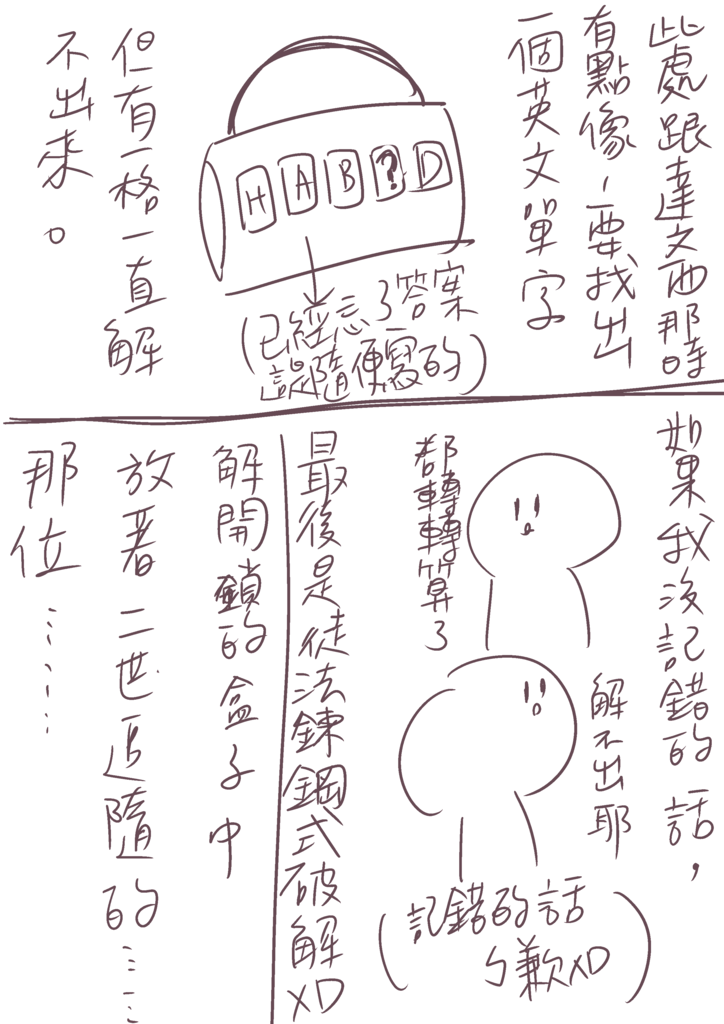 此處跟達文西那時
有點像，要找出
一個英文單字
HAB?D
(已經忘了答案
這是隨便寫的)
但有一格一直解
不出來。
如果我沒記錯的話，
解不出耶
都轉轉算了
(記錯的話
ㄅ歉XD)
最後是徒法鍊鋼式破解XD
解開鎖的盒子中
放著二世追隨的……
那位……